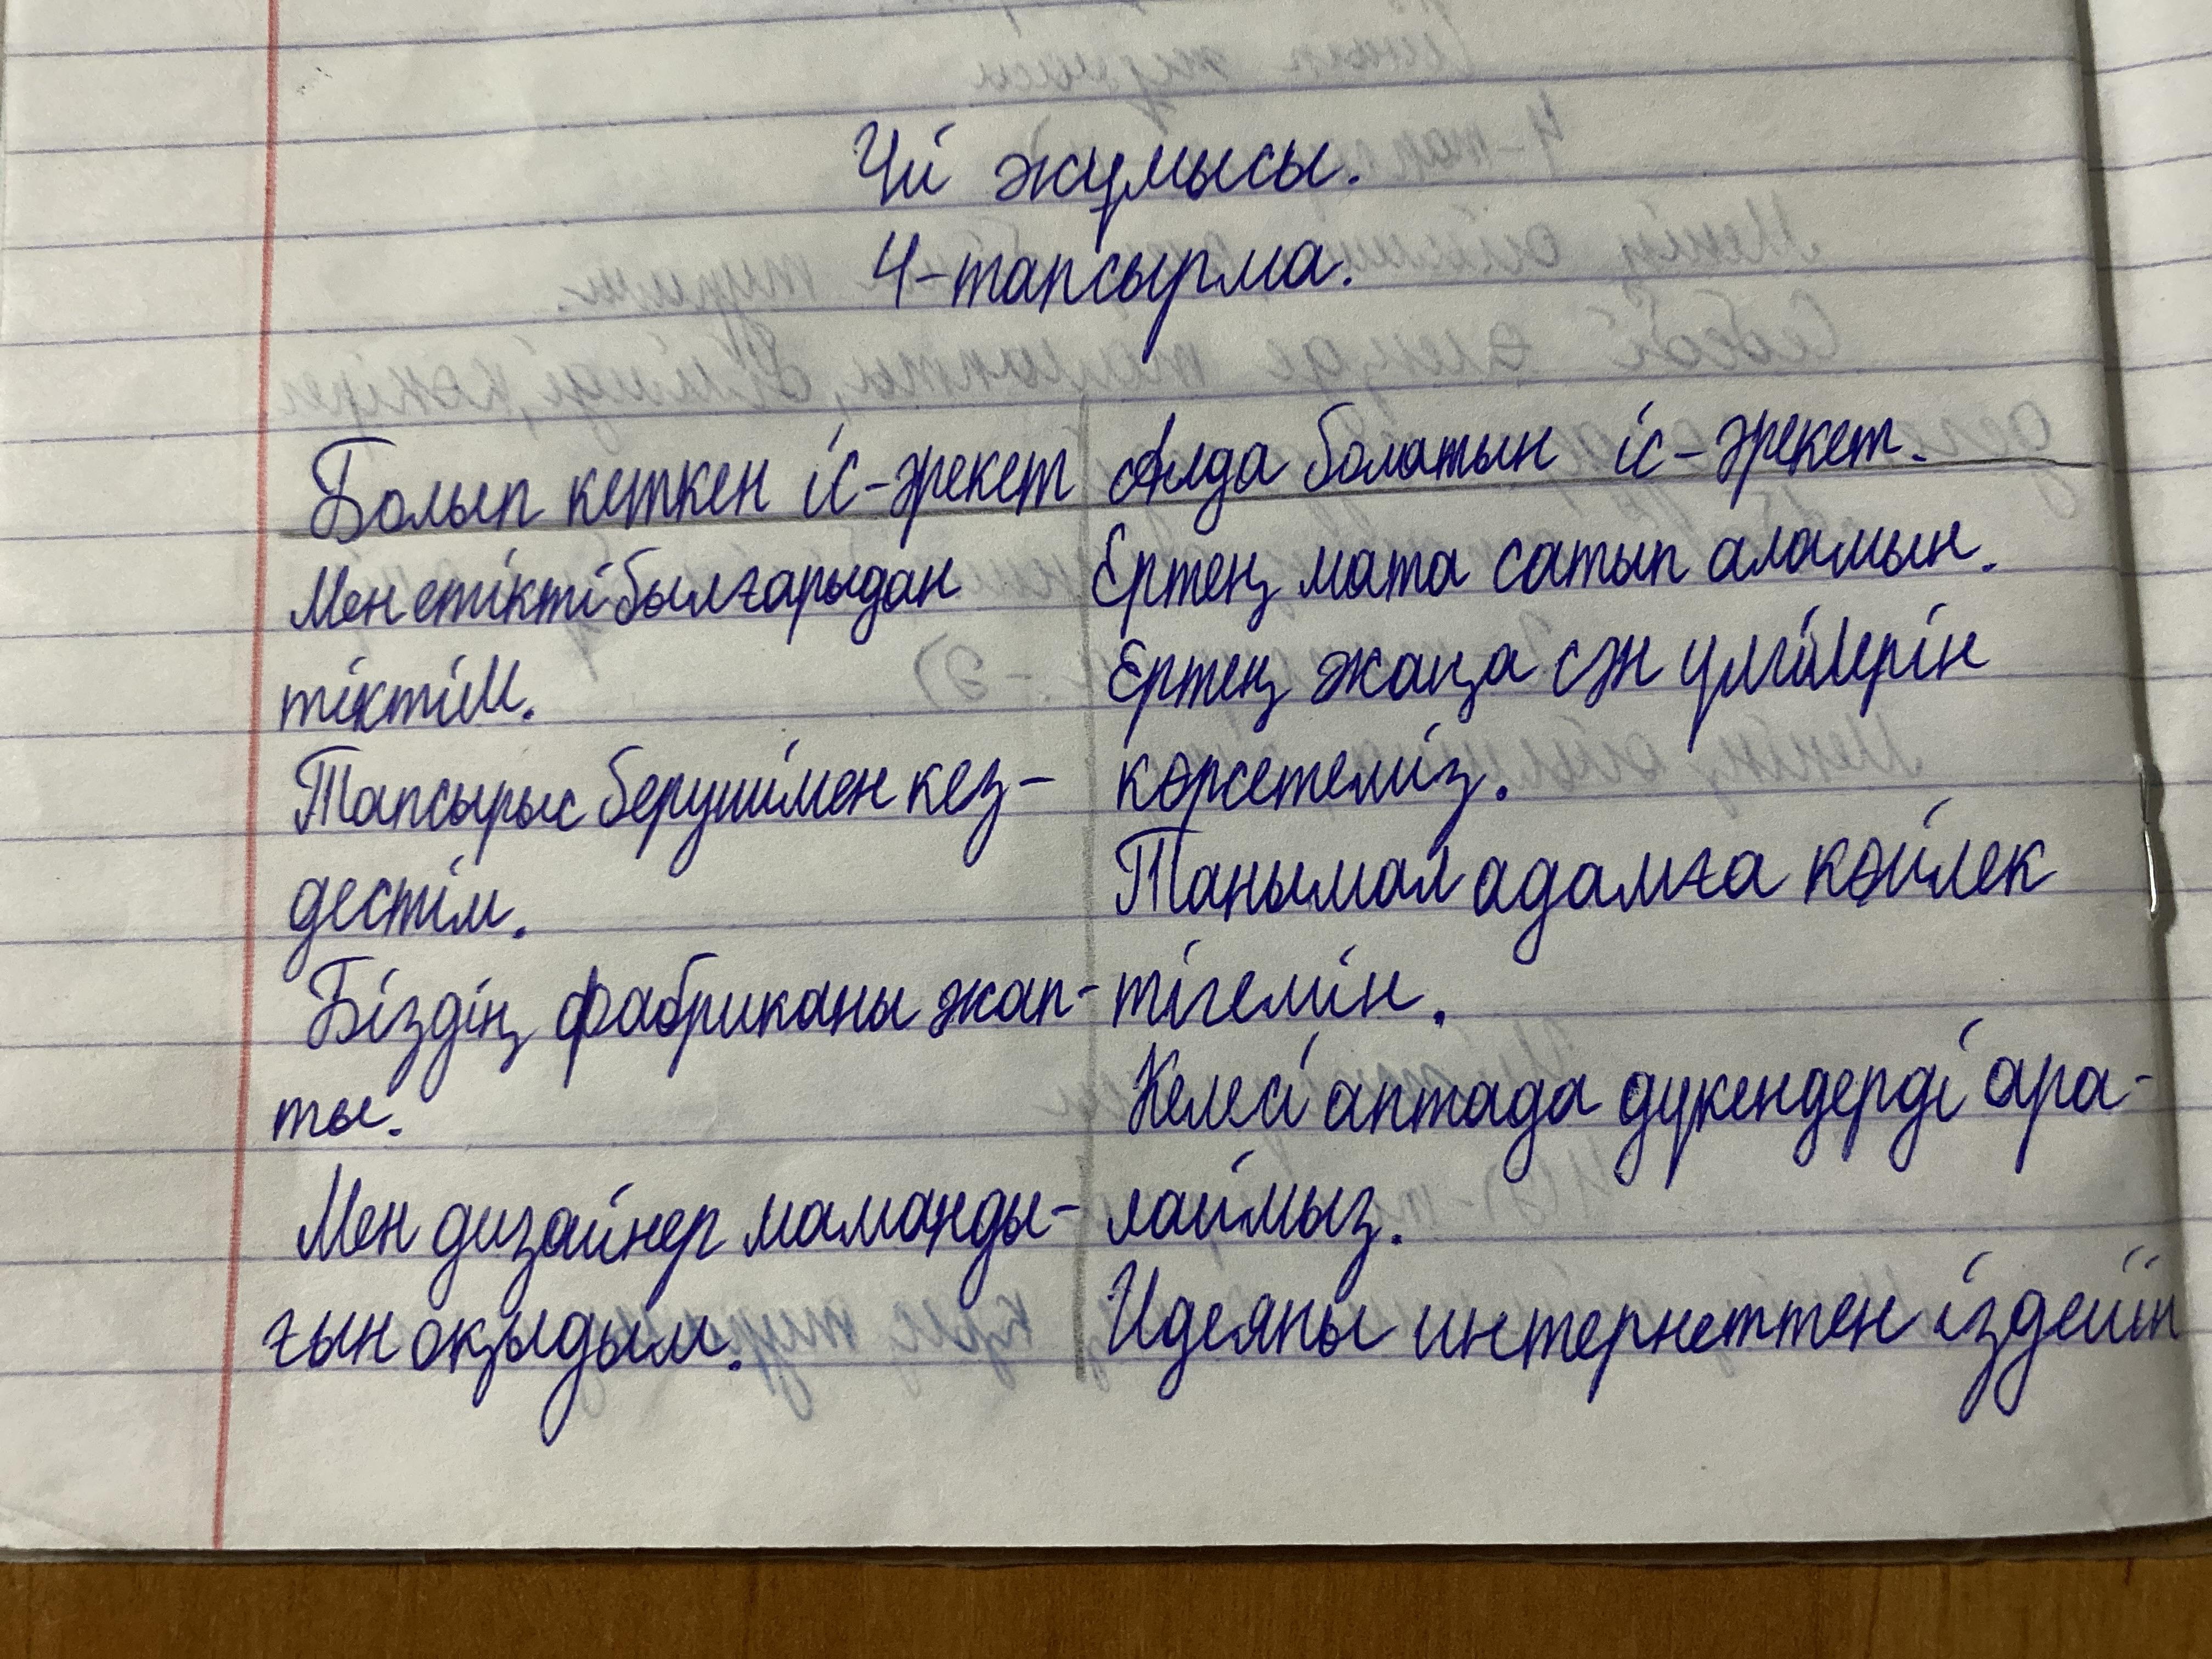 Үй жұмысы.
4-тапсырма.
Болып кеткен іс-әрекет
Мен етікті былғарыдан
тіктім.
Тапсырыс берушімен кез-
дестім.
Біздің фабриканы жап-
ты.
Мен дизайнер маманды-
ғын оқыдым.
Алда болатын іс-әрекет.
Ертең мата сатып аламын.
Ертең жаңа сән үлгілерін
көрсетеміз.
Танымал адамға көйлек
тігемін.
Келесі аптада дүкендерді ара-
лаймыз.
Идеяны интернеттен іздейін